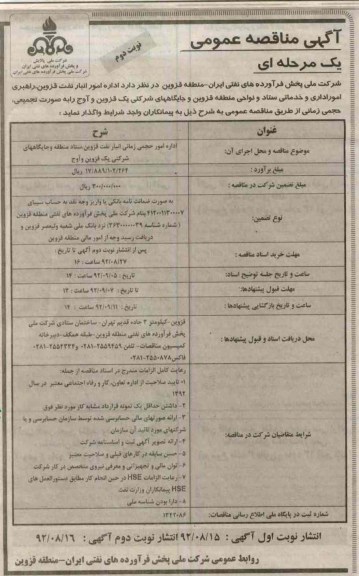 شرکت ملی پخش
فرآورده های نفتی ایران
نوبت دوم
آگهی مناقصه عمومی
یک مرحله ای
شرکت ملی پخش فرآورده های نفتی ایران-منطقه قزوین در نظر دارد اداره امور انبار نفت قزوین،راهبری
اموراداری و خدماتی ستاد و نواحی منطقه قزوین و جایگاههای شرکتی یک قزوین و آوج رابه صورت تجمیعی،
حجمی زمانی از طریق مناقصه عمومی به شرح ذیل به پیمانکاران واجد شرایط واگذار نماید :
عنوان
شرح
موضوع مناقصه و محل اجرای آن:
اداره امور حجمی زمانی انبار نفت قزوین،ستاد منطقه وجایگاههای
شرکتی یک قزوین وآوج
مبلغ برآورد :
۱۷/۸۸۹/۱۰۲/۲۶۴ ریال
مبلغ تضمین شرکت در مناقصه :
۳۰۰/۰۰۰/۰۰۰ ریال
نوع تضمین:
به صورت ضمانت نامه بانکی یا واریز وجه نقد به حساب سیبای
بنام شرکت ملی پخش فرآورده های نفتی منطقه قزوین
نزد بانک ملی شعبه ولیعصر قزوین و
دریافت رسید وجه از امور مالی منطقه قزوین
مهلت خرید اسناد مناقصه :
پس از انتشار نوبت دوم آگهی تا تاریخ :
۹۲/۰۸/۲۷ ساعت : ۱۶
ساعت و تاریخ جلسه توضیح اسناد:
تاریخ : ۹۲/۰۹/۰۵ ساعت : ۱۴
مهلت قبول پیشنهادها:
تاریخ : ۹۲/۰۹/۰۷ ساعت : ۱۴
ساعت و تاریخ بازگشایی پیشنهادها:
تاریخ : ۹۲/۰۹/۱۱ ساعت : ۱۴
محل دریافت اسناد و قبول پیشنهادها:
قزوین -کیلومتر ۳ جاده قدیم تهران - ساختمان ستادی شرکت ملی
پخش فرآورده های نفتی منطقه قزوین-طبقه همکف-دبیرخانه
کمیسیون مناقصات- تلفن
فاکس
شرایط متقاضیان شرکت در مناقصه:
رعایت کامل الزامات مندرج در اسناد مناقصه از جمله:
۱- تایید صلاحیت از اداره تعاون، کار و رفاه اجتماعی معتبر در سال
۱۳۹۲
۲- داشتن حداقل یک نمونه قرارداد مشابه کار مورد نظر فوق
۳- ارائه صورتهای مالی حسابرسی شده توسط سازمان حسابرسی و یا
شرکتهای مورد تائید آن سازمان
۴- ارائه تصویر آگهی ثبت و اساسنامه شرکت
۵- حسن سابقه در کارهای قبلی و صلاحیت معتبر
۶- توان مالی و تجهیزاتی و معرفی نیروی متخصص در کار شرکت
۷- رعایت الزامات HSE در حین انجام کار مطابق دستورالعمل های
HSE پیمانکاران وزارت نفت
۸- دارا بودن شناسه ملی
شماره ثبت در پایگاه ملی اطلاع رسانی مناقصات:
انتشار نوبت اول آگهی : ۹۲/۰۸/۱۵ انتشار نوبت دوم آگهی : ۹۲/۰۸/۱۶
روابط عمومی شرکت ملی پخش فرآورده های نفتی ایران-منطقه قزوین